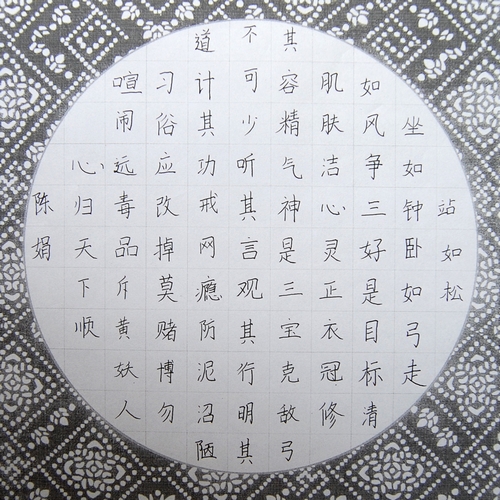 站如松
坐如钟卧如弓走
如风争三好是目标清
肌肤洁心灵正衣冠修
其容精气神是三宝克敌弓
不可少听其言观其行明其
道计其功戒网瘾防泥沼陋
习俗应改掉莫赌博勿
喧闹远毒品斥黄妖人
心归天下顺
陈娟